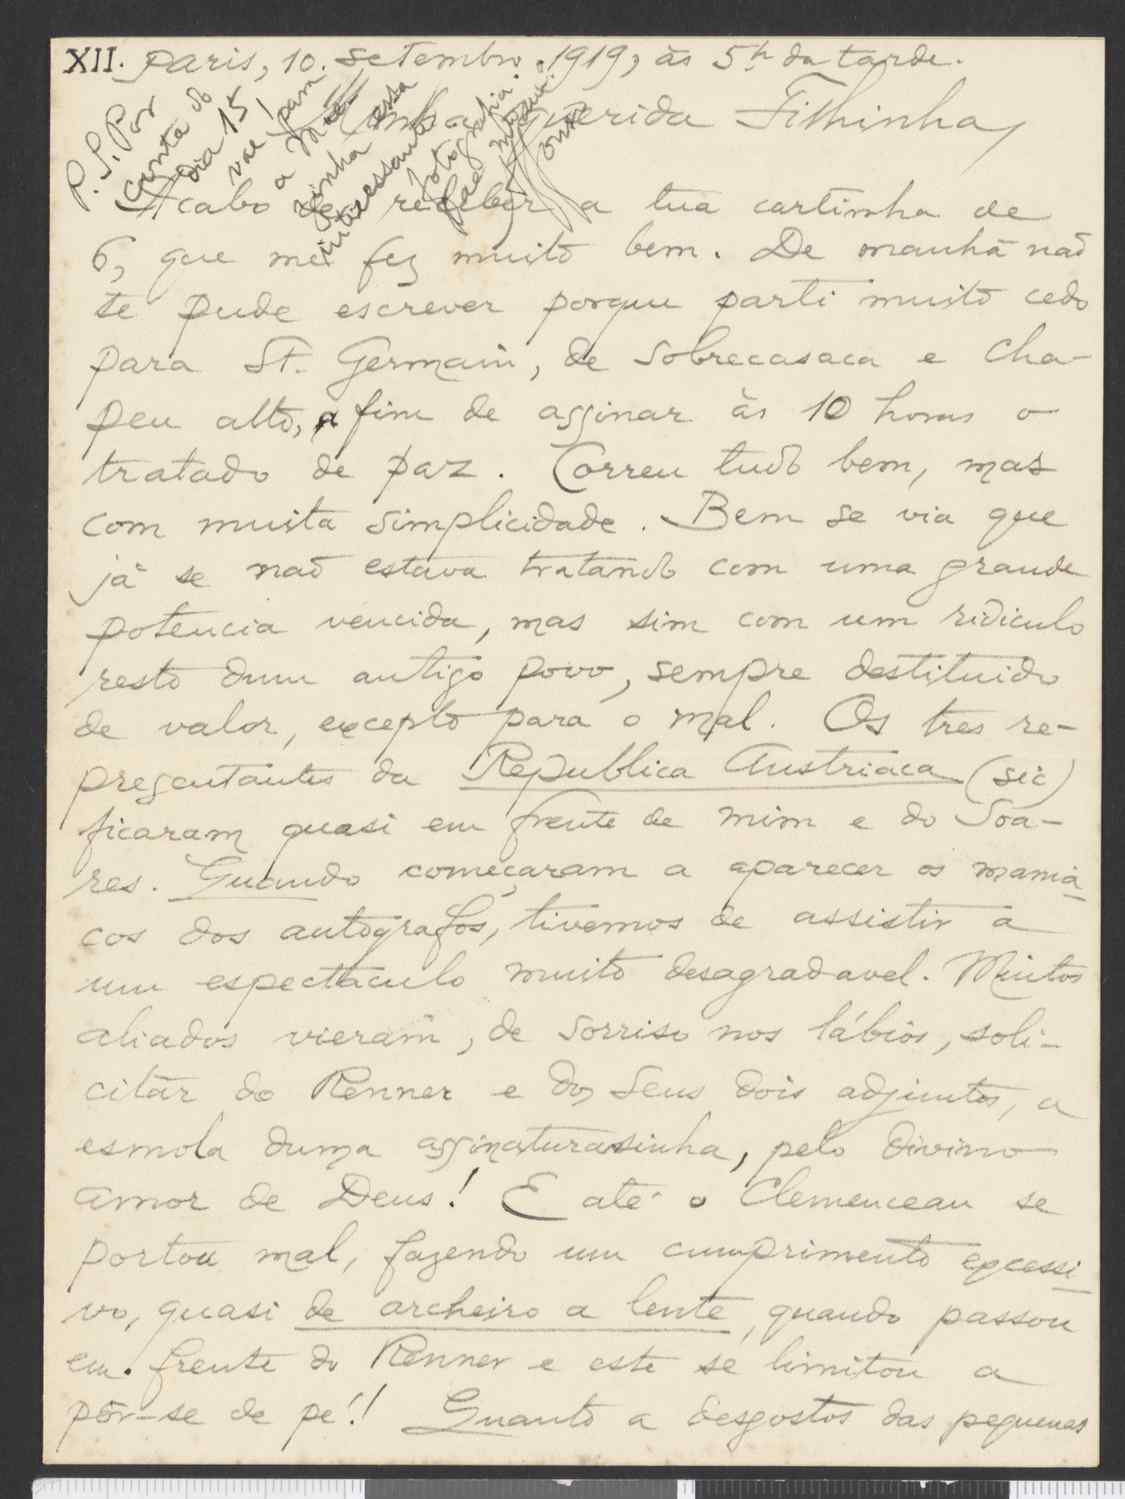 XII. Paris, 10. setembro. 1919, às 5h da tarde.
P. S. Por
conta do
dia 15
vae para
a Mãe-
sinha essa
interessante
fotografia
Minha querida Filhinha,
Acabo de receber a tua cartinha de
6, que me fez muito bem. De manhã não
te pude escrever porque parti muito cedo
para St. Germain, de sobrecasaca e cha-
peu alto, a fim de assinar às 10 horas o
tratado de paz. Correu tudo bem, mas
com muita simplicidade. Bem se via que
já se não estava tratando com uma grande
potencia vencida, mas sim com um ridiculo
resto dum antigo povo, sempre destituido
de valor, excepto para o mal. Os tres re-
presentantes da Republica Austriaca (sic)
ficaram quasi em frente de mim e do Soa-
res. Quando começaram a aparecer os mania-
cos dos autografos, tivemos de assistir a
um espectaculo muito desagradavel. Muitos
aliados vieram, de sorriso nos lábios, soli-
citar do Renner e dos seus dois adjuntos, a
esmola duma assinaturasinha, pelo divino
amor de Deus! E até o Clemenceau se
portou mal, fazendo um cumprimento excessi-
vo, quasi de archeiro a lente, quando passou
em frente do Renner e este se limitou a
pôr-se de pé!! Quanto a desgostos das pequenas